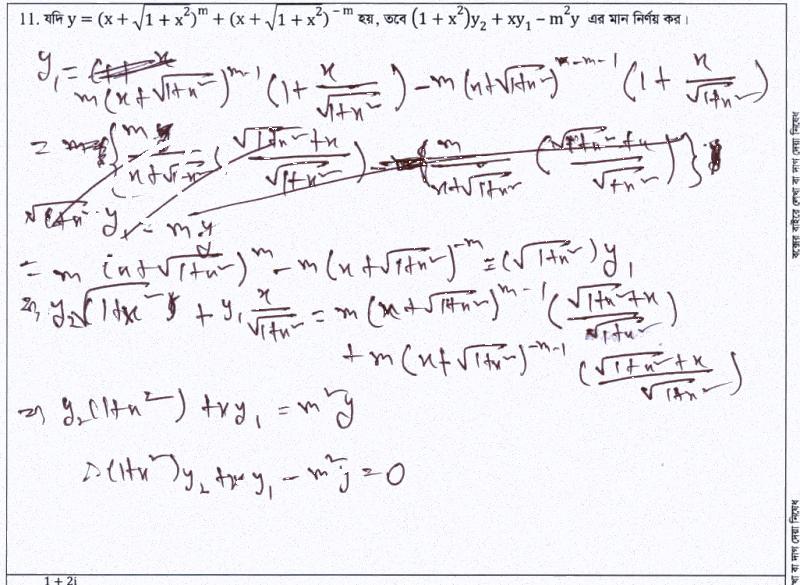 11. যদি y = (x + √(1 + x²))^m + (x + √(1 + x²))^-m হয়, তবে (1 + x²)y₂ + xy₁ − m²y এর মান নির্ণয় কর।
y₁ = m(x + √(1+x²))^m-1 (1 + x/√(1+x²)) − m(x + √(1+x²))^-m-1 (1 + x/√(1+x²))
= m (x + √(1+x²))^m − m(x + √(1+x²))^-m = (√(1+x²)) y₁
⇒ y₂√(1+x²) + y₁ x/√(1+x²) = m(x + √(1+x²))^m-1 (√(1+x²)+x/√(1+x²))
+ m(x + √(1+x²))^-m-1 (√(1+x²)+x/√(1+x²))
⇒ y₂(1+x²) + xy₁ = m²y
∴ (1+x²)y₂ + xy₁ − m²y = 0
1 + 2i
বক্সের বাইরে লেখা বা দাগ দেয়া নিষেধ
বা দাগ দেয়া নিষেধ